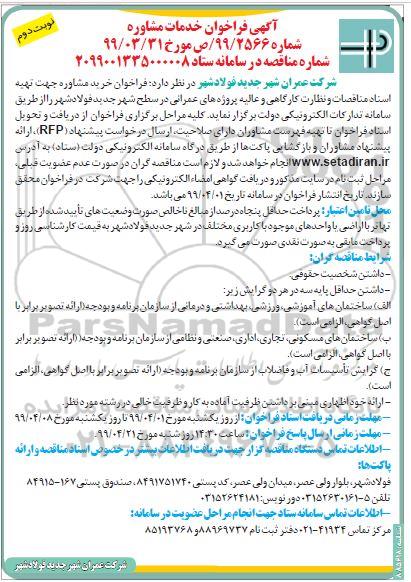 نوبت دوم
آگهی فراخوان خدمات مشاوره
شماره ۹۹/۲۵۶۶/ص مورخ ۹۹/۰۳/۳۱
شماره مناقصه در سامانه ستاد ۲۰۹۹۰۰۱۳۳۵۰۰۰۰۰۸
شرکت عمران شهر جدید فولادشهر در نظر دارد؛ فراخوان خرید مشاوره جهت تهیه
اسناد مناقصات و نظارت کارگاهی و عالیه پروژه های عمرانی در سطح شهر جدید فولادشهر را از طریق
سامانه تدارکات الکترونیکی دولت برگزار نماید. کلیه مراحل برگزاری فراخوان از دریافت و تحویل
اسناد فراخوان تا تهیه فهرست مشاوران دارای صلاحیت، ارسال درخواست پیشنهاد (RFP)، ارائه
پیشنهاد مشاوران و بازگشایی پاکت‌ها از طریق درگاه سامانه الکترونیکی دولت (ستاد) به آدرس
www.setadiran.ir انجام خواهد شد و لازم است مناقصه گران در صورت عدم عضویت قبلی،
مراحل ثبت نام در سایت مذکور و دریافت گواهی امضاء الکترونیکی را جهت شرکت در فراخوان محقق
سازند. تاریخ انتشار فراخوان در سامانه تاریخ ۹۹/۰۴/۰۱ می باشد.
محل تامین اعتبار: پرداخت حداقل پنجاه درصد از مبالغ ناخالص صورت وضعیت های تأیید شده از طریق
تهاتر با اراضی یا واحدهای موجود با کاربری مختلف در شهر جدید فولادشهر به قیمت کارشناسی روز و
پرداخت مابقی به صورت نقدی صورت می گیرد.
شرایط مناقصه گران:
-داشتن شخصیت حقوقی.
-داشتن حداقل پایه سه در هر دو گرایش زیر:
الف) ساختمان های آموزشی، ورزشی، بهداشتی و درمانی از سازمان برنامه و بودجه (ارائه تصویر برابر با
اصل گواهی، الزامی است).
ب) ساختمان های مسکونی، تجاری، اداری، صنعتی و نظامی از سازمان برنامه و بودجه (ارائه تصویر برابر
با اصل گواهی، الزامی است).
ج) گرایش تأسیسات آب و فاضلاب از سازمان برنامه و بودجه (ارائه تصویر برابر با اصل گواهی، الزامی
است).
-ارائه خود اظهاری مبنی بر داشتن ظرفیت آماده به کار و ظرفیت خالی در رشته مورد نظر.
-مهلت زمانی دریافت اسناد فراخوان: از روز یکشنبه مورخ ۹۹/۰۴/۰۱ تا روز یکشنبه مورخ ۹۹/۰۴/۰۸
-مهلت زمانی ارسال پاسخ فراخوان: ساعت ۱۴:۳۰ روز شنبه مورخ ۹۹/۰۴/۲۱
-اطلاعات تماس دستگاه مناقصه گزار جهت دریافت اطلاعات بیشتر در خصوص اسناد مناقصه و ارائه
پاکت‌ها:
فولادشهر، بلوار ولی عصر، میدان ولی عصر، کد پستی ۸۴۹۱۷۵۱۷۴۰، صندوق پستی ۱۶۷-۸۴۹۱۵
تلفن ۵-۰۳۱۵۲۶۳۰۱۶۱ دورنویس: ۰۳۱۵۲۶۲۴۱۸۱
-اطلاعات تماس سامانه ستاد جهت انجام مراحل عضویت در سامانه:
مرکز تماس ۴۱۹۳۴-۰۲۱ دفتر ثبت نام ۸۸۹۶۹۷۳۷ و ۸۵۱۹۳۷۶۸
شرکت عمران شهر جدید فولادشهر
ParsNamadData